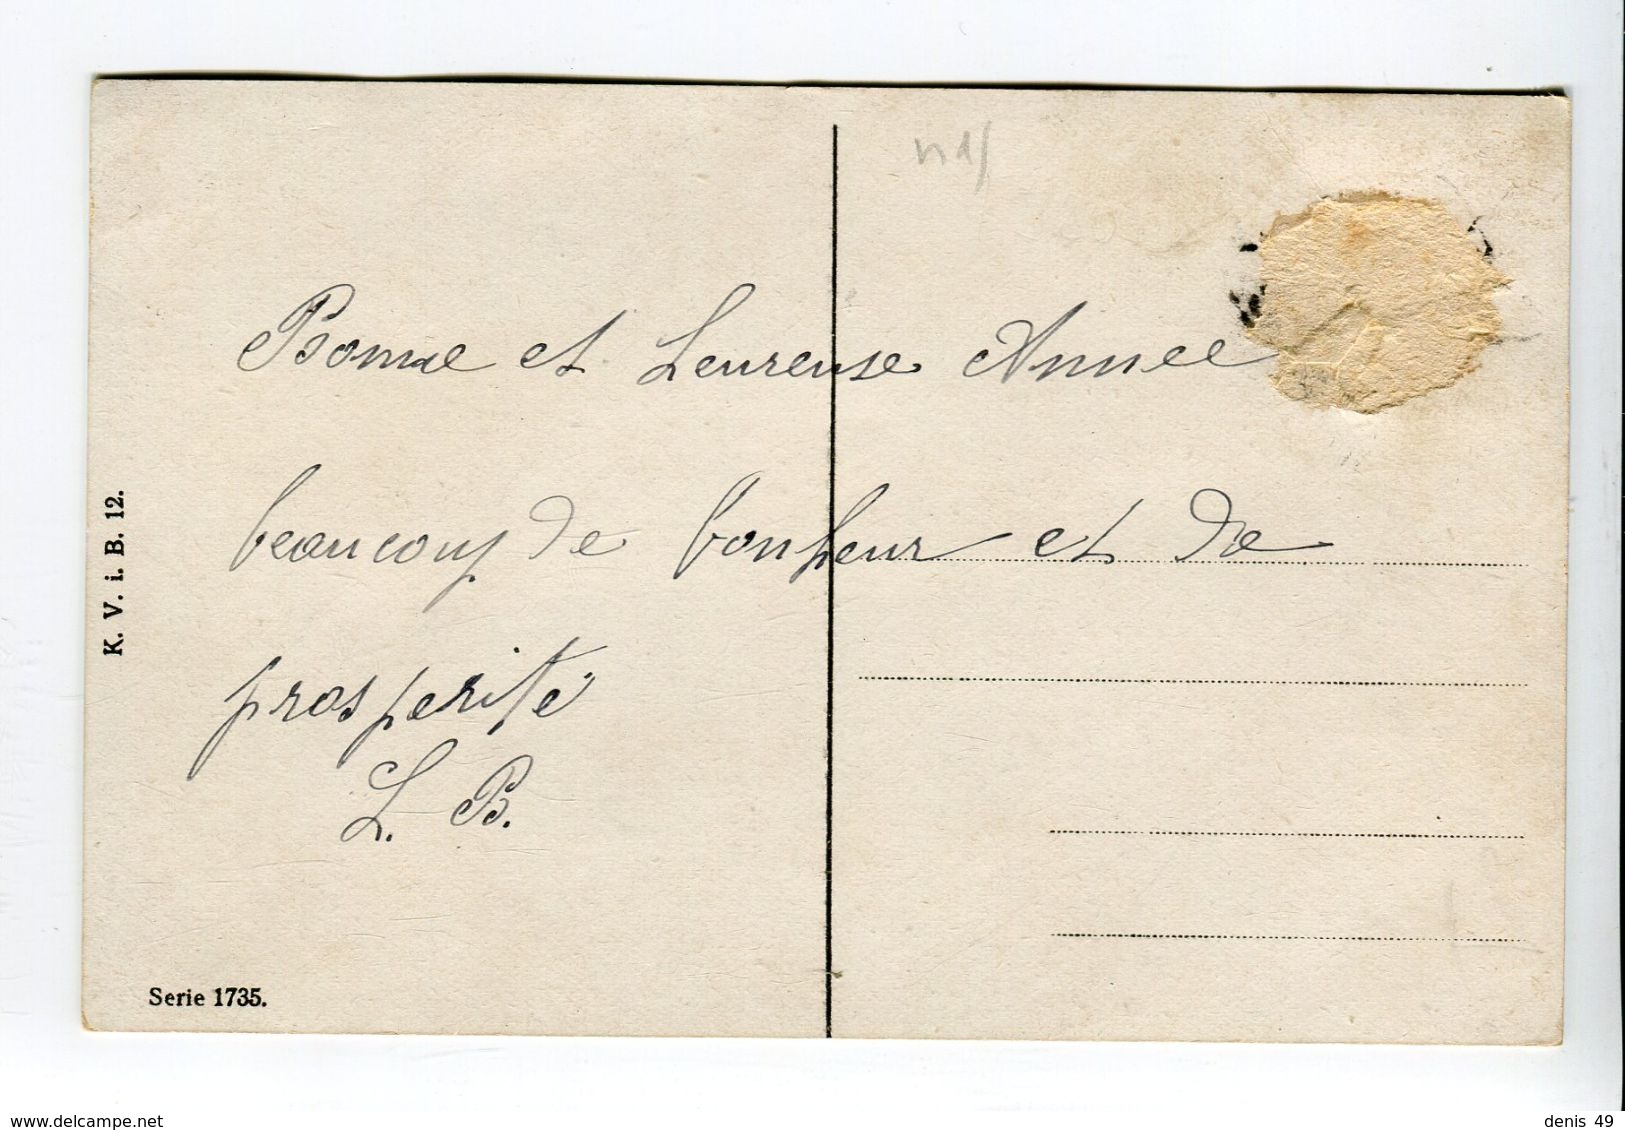 Bonne et heureuse Annee
beaucoup de bonheur et de
prosperité
L. B.
K. V. i. B. 12.
Serie 1735.
delcampe.net
denis 49